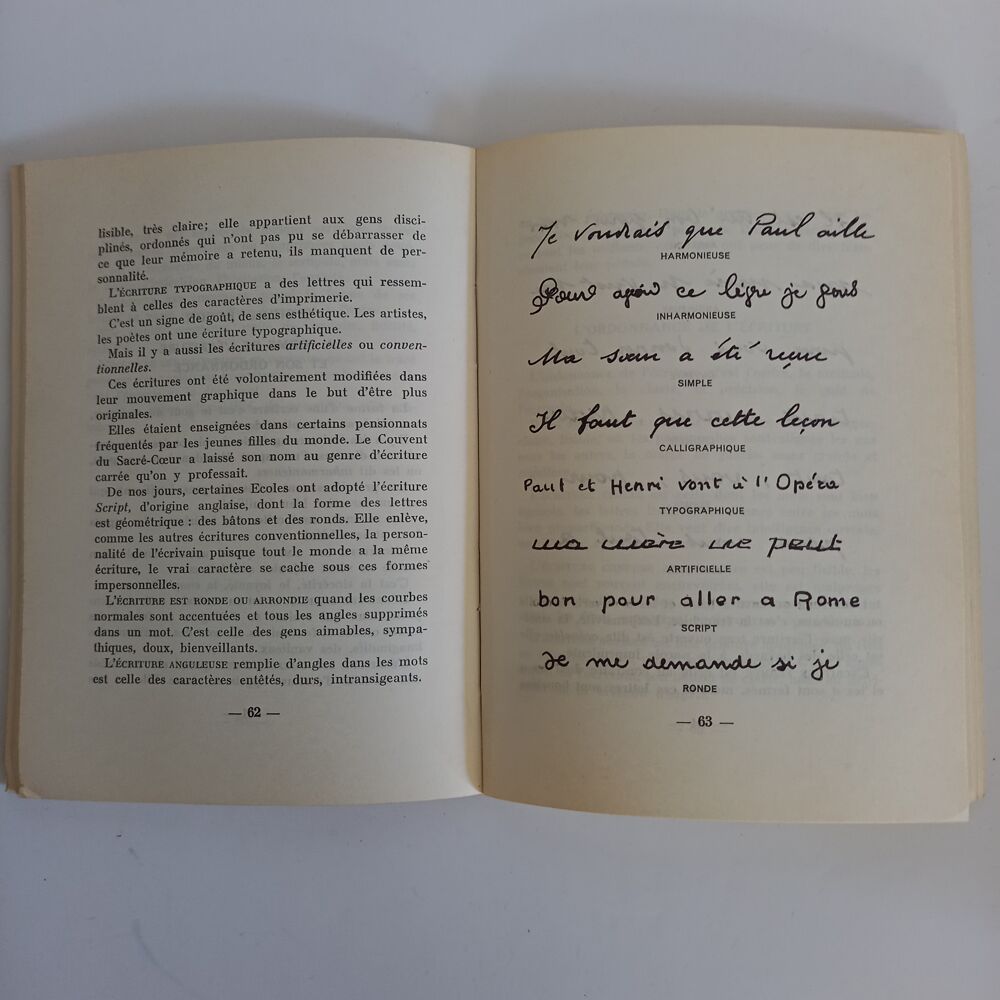 lisible, très claire; elle appartient aux gens disci-
plinés, ordonnés qui n'ont pas pu se débarrasser de
ce que leur mémoire a retenu, ils manquent de per-
sonnalité.
L'ÉCRITURE TYPOGRAPHIQUE a des lettres qui ressem-
blent à celles des caractères d'imprimerie.
C'est un signe de goût, de sens esthétique. Les artistes,
les poètes ont une écriture typographique.
Mais il y a aussi les écritures artificielles ou conven-
tionnelles.
Ces écritures ont été volontairement modifiées dans
leur mouvement graphique dans le but d'être plus
originales.
Elles étaient enseignées dans certains pensionnats
fréquentés par les jeunes filles du monde. Le Couvent
du Sacré-Cœur a laissé son nom au genre d'écriture
carrée qu'on y professait.
De nos jours, certaines Ecoles ont adopté l'écriture
Script, d'origine anglaise, dont la forme des lettres
est géométrique : des bâtons et des ronds. Elle enlève,
comme les autres écritures conventionnelles, la person-
nalité de l'écrivain puisque tout le monde a la même
écriture, le vrai caractère se cache sous ces formes
impersonnelles.
L'ÉCRITURE EST RONDE OU ARRONDIE quand les courbes
normales sont accentuées et tous les angles supprimés
dans un mot. C'est celle des gens aimables, sympa-
thiques, doux, bienveillants.
L'ÉCRITURE ANGULEUSE remplie d'angles dans les mots
est celle des caractères entêtés, durs, intransigeants.
— 62 —
Je voudrais que Paul aille
HARMONIEUSE
Pour ce je
INHARMONIEUSE
Ma sœur a été reçue
SIMPLE
Il faut que cette leçon
CALLIGRAPHIQUE
Paul et Henri vont à l'Opéra
TYPOGRAPHIQUE
ma mère ne peut
ARTIFICIELLE
bon pour aller a Rome
SCRIPT
Je me demande si je
RONDE
— 63 —